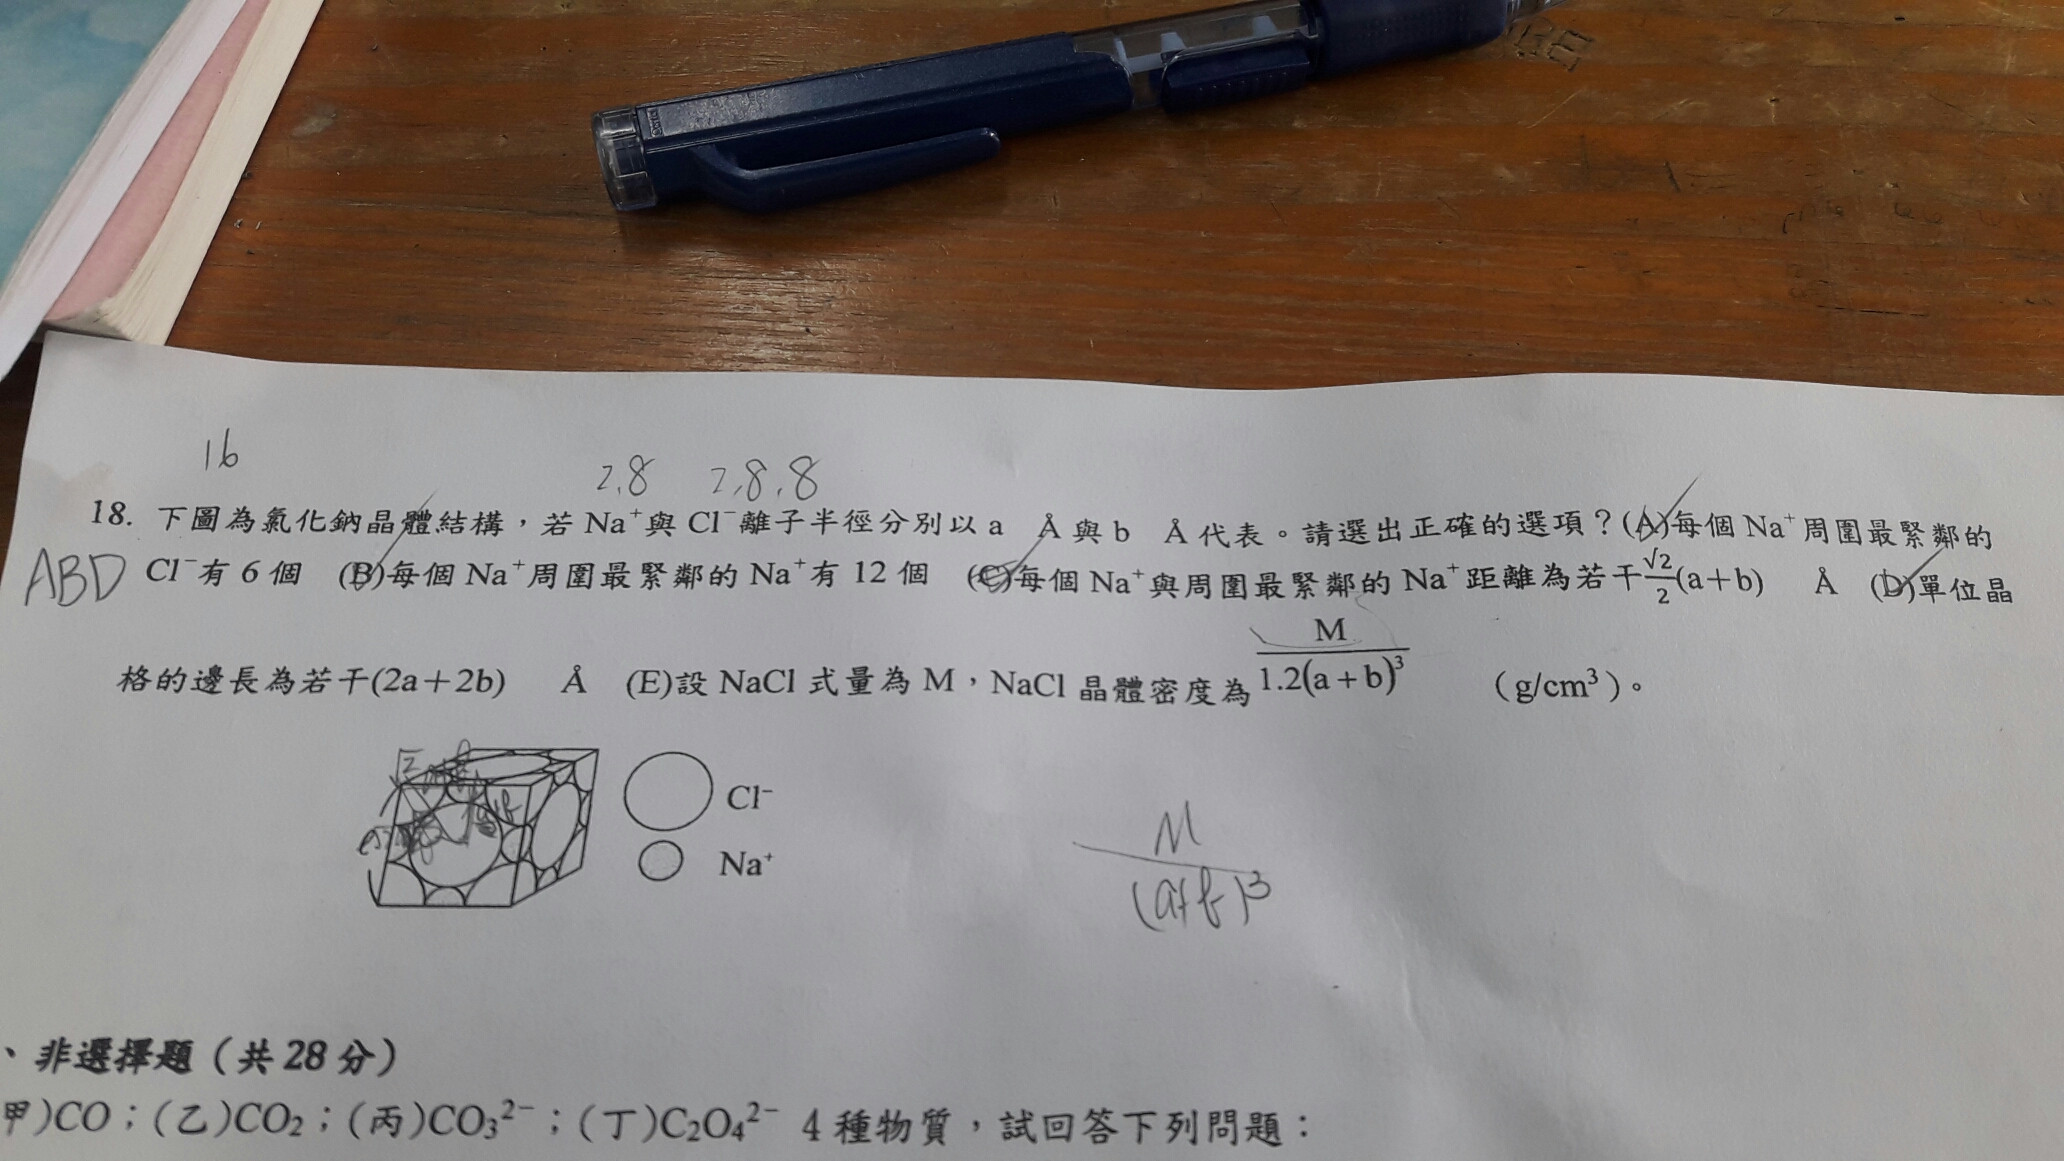 16
2,8 2,8,8
18. 下圖為氯化鈉晶體結構，若 Na⁺與 Cl⁻離子半徑分別以 a Å 與 b Å 代表。請選出正確的選項？(A)每個 Na⁺周圍最緊鄰的
ABD Cl⁻有 6 個 (B)每個 Na⁺周圍最緊鄰的 Na⁺有 12 個 (C)每個 Na⁺與周圍最緊鄰的 Na⁺距離為若干√2/2(a+b) Å (D)單位晶
格的邊長為若干(2a+2b) Å (E)設 NaCl 式量為 M，NaCl 晶體密度為 M/1.2(a+b)³ (g/cm³)。
Cl⁻
Na⁺
M/(a+b)³
、非選擇題（共 28 分）
甲)CO；(乙)CO₂；(丙)CO₃²⁻；(丁)C₂O₄²⁻ 4 種物質，試回答下列問題：